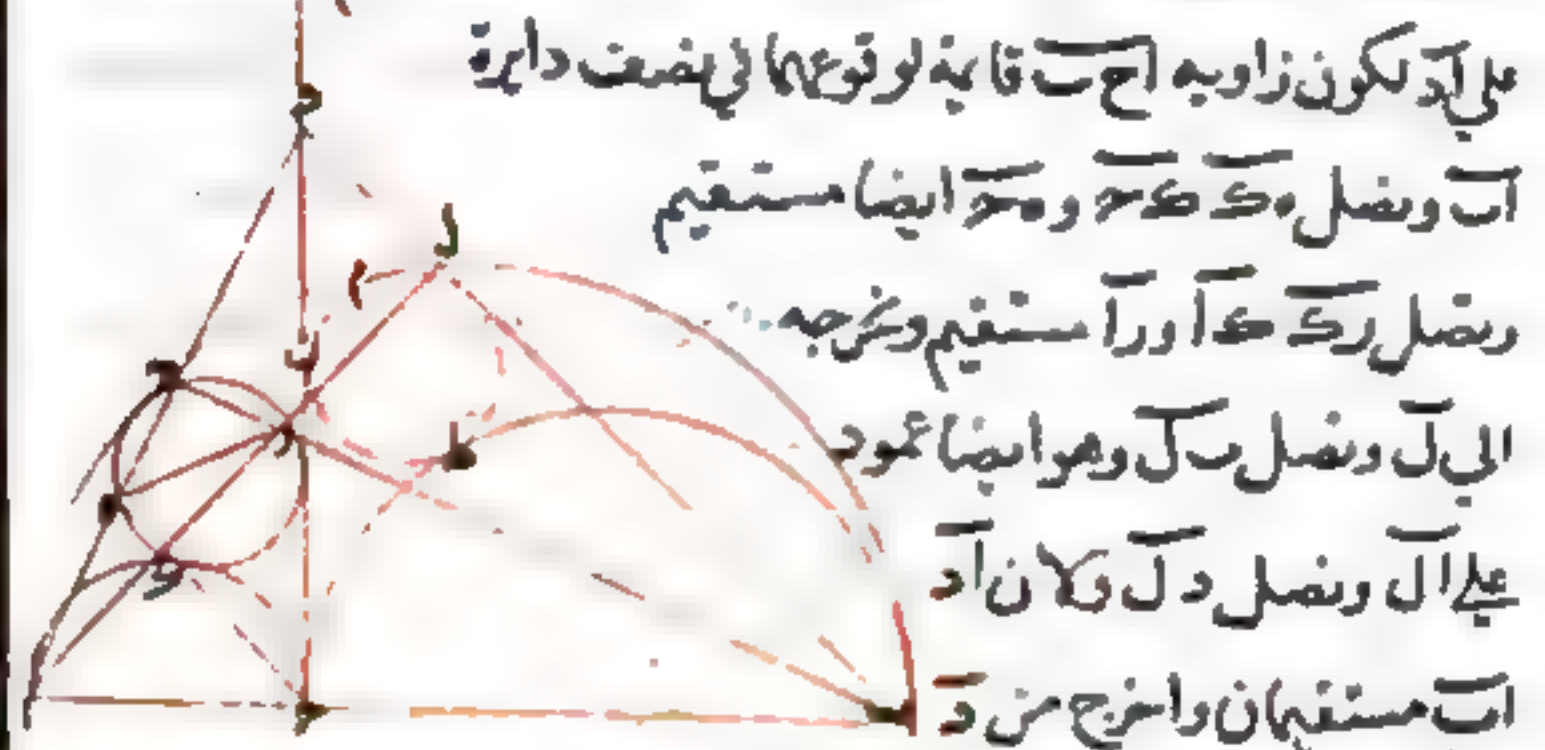 علي اد لكون زاويه اح ب قايمة لوقوعهما في نصف دايرة
اب ونصل ه ك ك ح و ه ك ح ايضا مستقيم
ونصل ر ك ك ا و را مستقيم ونخرجه
الي ل ونصل ب ل وهو ايضا عمود
علي ا ل ونصل د ل ولان اد
اب مستقيمان واخرج من د